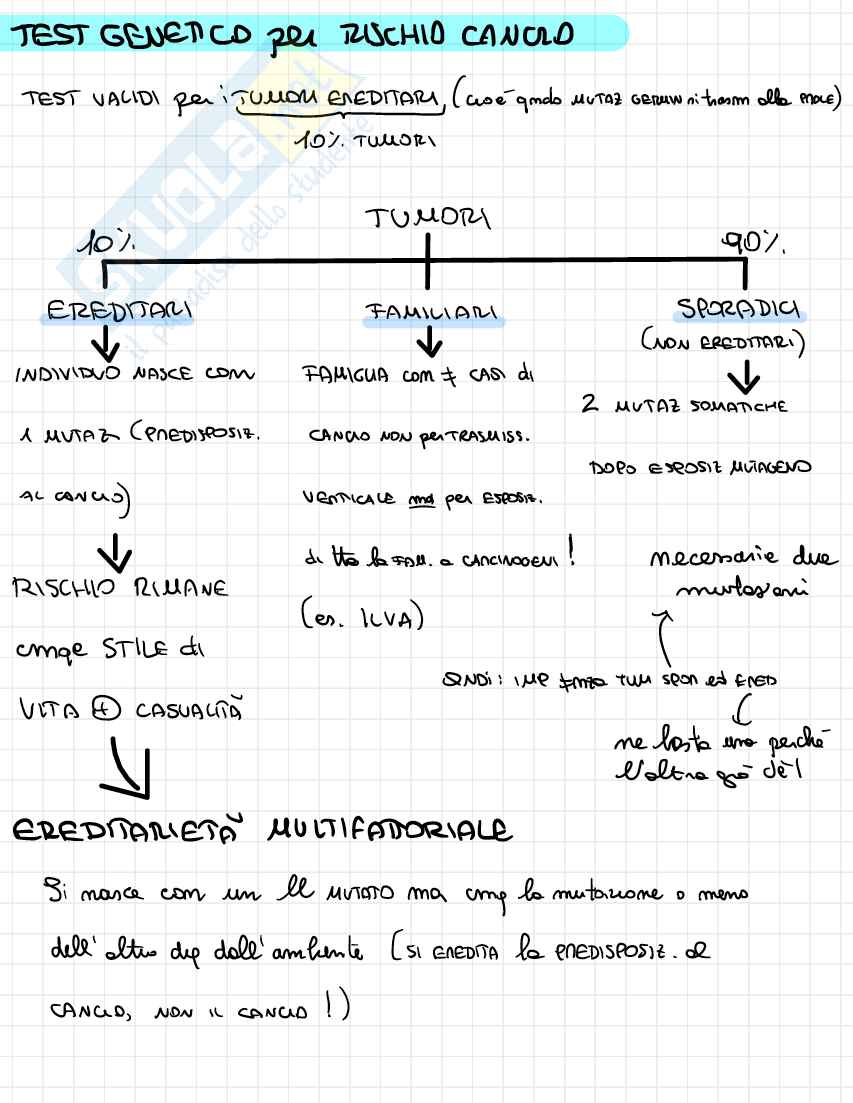 TEST GENETICO per RISCHIO CANCRO
TEST VALIDI per i TUMORI EREDITARI, (cioè qndo MUTAZ GERMIN si trasm alla PROLE)
10% TUMORI
TUMORI
10%
90%
EREDITARI
INDIVIDUO NASCE CON
1 MUTAZ (PREDISPOSIZ.
AL CANCRO)
RISCHIO RIMANE
cmqe STILE di
VITA + CASUALITÀ
FAMILIARI
FAMIGLIA con ≠ CASI di
CANCRO NON per TRASMISS.
VERTICALE ma per ESPOSIZ.
di tta la FAM. a CANCINOGENI!
(es. ILVA)
SPORADICI
(NON EREDITARI)
2 MUTAZ SOMATICHE
DOPO ESPOSIZ MUTAGENO
necessarie due
mutazioni
QNDI: IMP ≠nza TUM SPOR ed ERED
ne basta una perché
l'altra già c'è!
EREDITARIETÀ MULTIFATTORIALE
Si nasce con un ll MUTATO ma cmq la mutazione o meno
dell'altro dip dall'ambiente (SI EREDITA la PREDISPOSIZ. al
CANCRO, NON IL CANCRO!)
SKUOLA.net
il paradiso dello studente